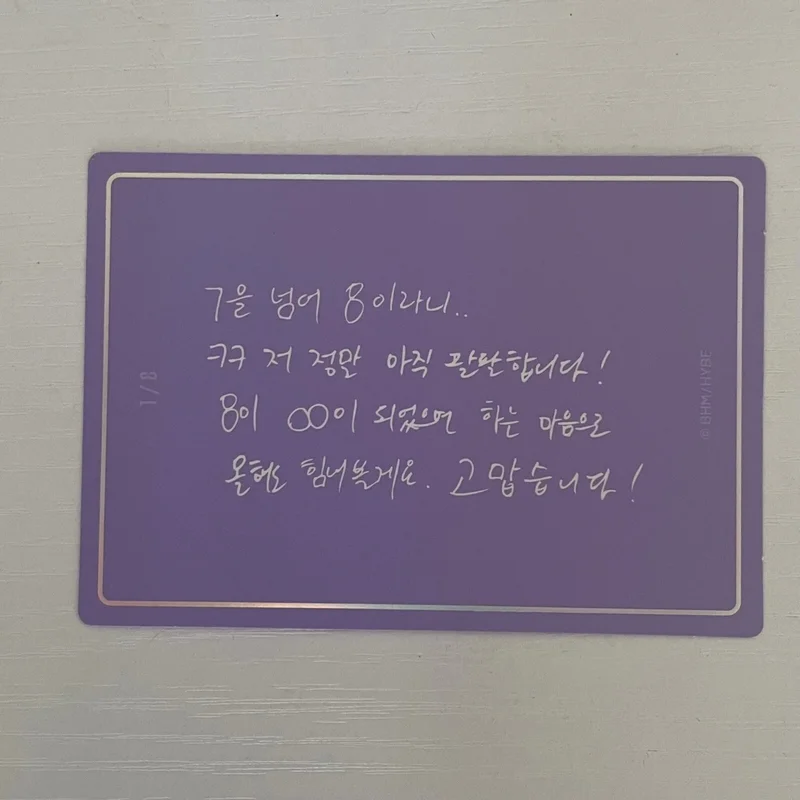 7을 넘어 8이라니..
ㅋㅋ 저 정말 아직 팔팔합니다!
8이 ∞이 되었으면 하는 마음으로
올해도 힘내볼게요. 고맙습니다!
1/8
© BHM/HYBE